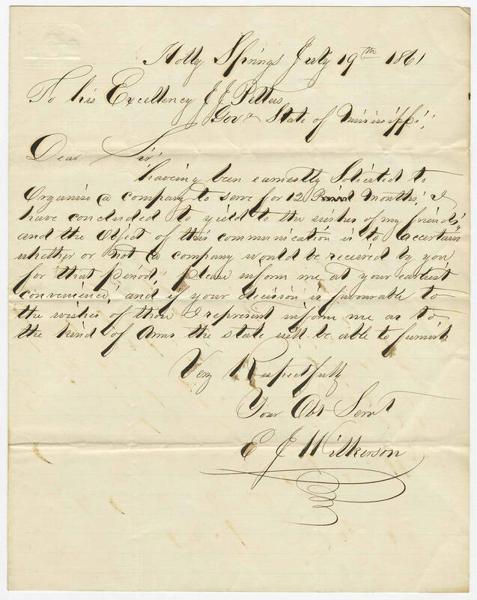 Holly Springs July 19th 1861
To his Excellency J J Pettus
Govr State of Mississippi;
Dear Sir;
having been earnestly Solicited to
Organise a company to serve for 12 months, I
have concluded to yield to the wishes of my friends
and the object of this communication is to ascertain
whether or not a company would be received by you
for that period; please inform me at your earliest
convenience, and if your decision is favourable to
the wishes of those I represent inform me as to
the kind of Arms the state will be able to furnish
Very Respectfully
Your Obt Servt
E J Wilkerson